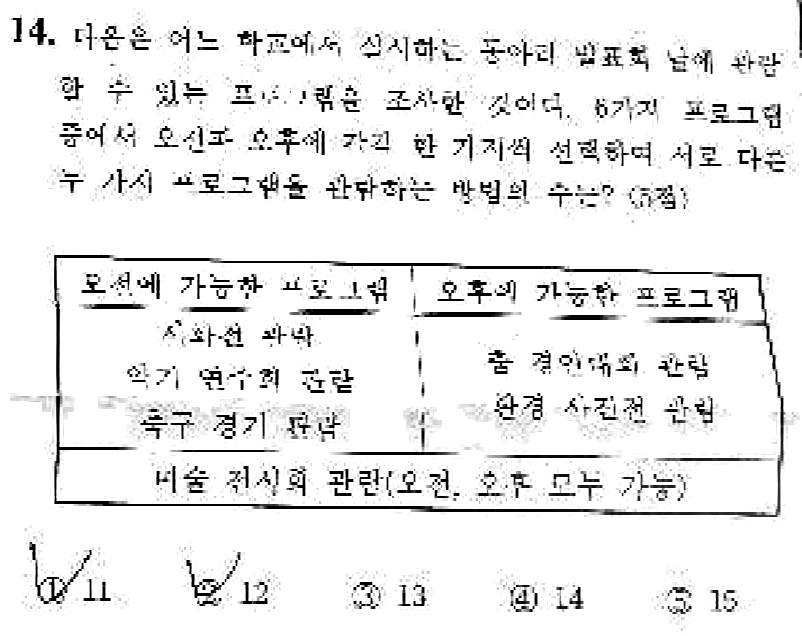 14. 다음은 어느 학교에서 실시하는 동아리 발표회 날에 관람
할 수 있는 프로그램을 조사한 것이다. 6가지 프로그램
중에서 오전과 오후에 각각 한 가지씩 선택하여 서로 다른
두 가지 프로그램을 관람하는 방법의 수는? (5점)
오전에 가능한 프로그램
오후에 가능한 프로그램
시화전 관람
악기 연주회 관람
축구 경기 관람
춤 경연대회 관람
환경 사진전 관람
미술 전시회 관람(오전, 오후 모두 가능)
① 11 ② 12 ③ 13 ④ 14 ⑤ 15